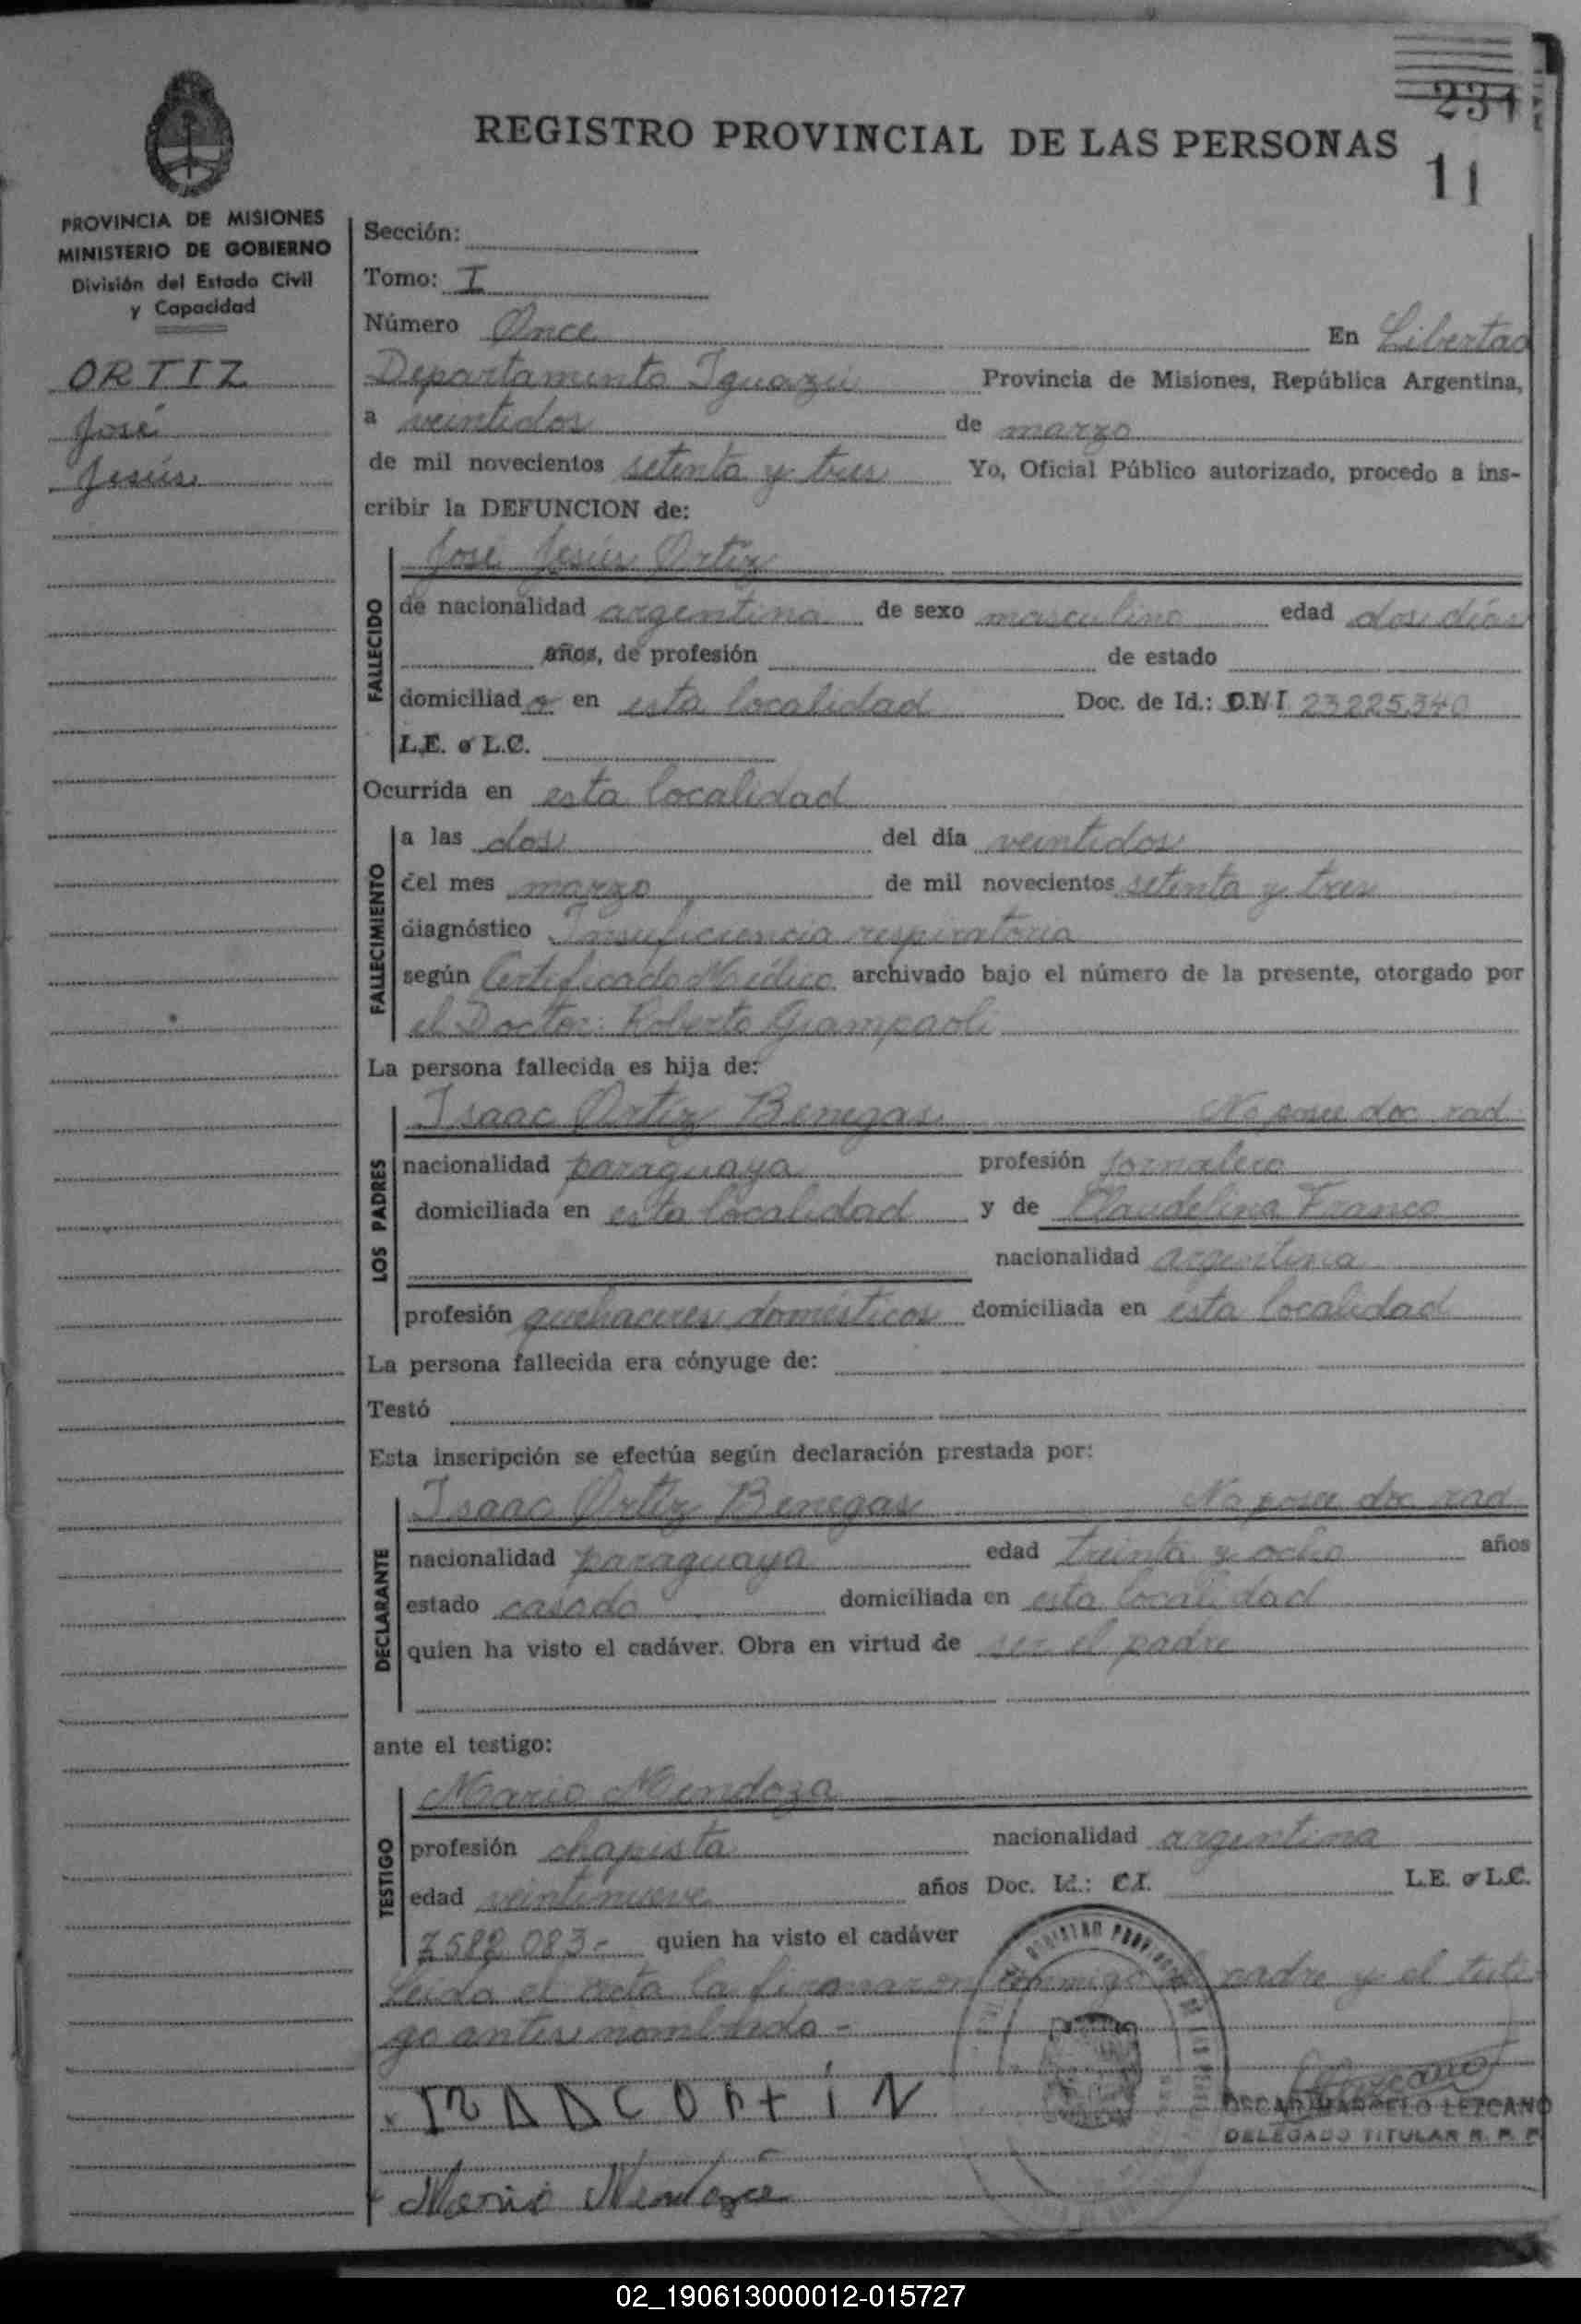 231
REGISTRO PROVINCIAL DE LAS PERSONAS
11
PROVINCIA DE MISIONES
MINISTERIO DE GOBIERNO
División del Estado Civil
y Capacidad
ORTIZ
José
Jesús
Sección:
Tomo: I
Número Once En Libertad
Departamento Iguazú Provincia de Misiones, República Argentina,
a veintidos de marzo
de mil novecientos setenta y tres Yo, Oficial Público autorizado, procedo a ins-
cribir la DEFUNCION de:
FALLECIDO
José Jesús Ortiz
de nacionalidad argentina de sexo masculino edad dos días
años, de profesión de estado
domiciliado en esta localidad Doc. de Id.: D.N.I 23225340
L.E. o L.C.
Ocurrida en esta localidad
FALLECIMIENTO
a las dos del día veintidos
del mes marzo de mil novecientos setenta y tres
diagnóstico Insuficiencia respiratoria
según Certificado Médico archivado bajo el número de la presente, otorgado por
el Doctor: Roberto Giampaoli
La persona fallecida es hija de:
LOS PADRES
Isaac Ortiz Benegas No posee doc rad
nacionalidad paraguaya profesión jornalero
domiciliada en esta localidad y de Claudelina Franco
nacionalidad argentina
profesión quehaceres domésticos domiciliada en esta localidad
La persona fallecida era cónyuge de:
Testó
Esta inscripción se efectúa según declaración prestada por:
DECLARANTE
Isaac Ortiz Benegas No posee doc rad
nacionalidad paraguaya edad treinta y ocho años
estado casado domiciliada en esta localidad
quien ha visto el cadáver. Obra en virtud de ser el padre
ante el testigo:
TESTIGO
Mario Mendoza
profesión chapista nacionalidad argentina
edad veintinueve años Doc. Id.: C.I. L.E. o L.C.
7582 083- quien ha visto el cadáver
Leida el acta la firmaron conmigo el padre y el testi-
go antes nombrado-
Mario Mendoza
OSCAR MARCELO LEZCANO
DELEGADO TITULAR R. P. P.
02_190613000012-015727